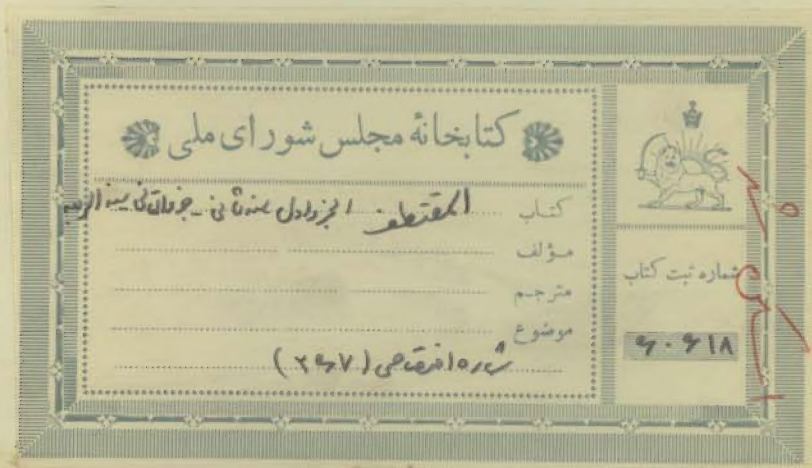 کتابخانهٔ مجلس شورای ملی
کتاب المقتطف الجزء الاول سنه ثانی -
مؤلف
مترجم
موضوع
شماره اختصاصی (۲۶۷)
شماره ثبت کتاب
۶۰۶۱۸